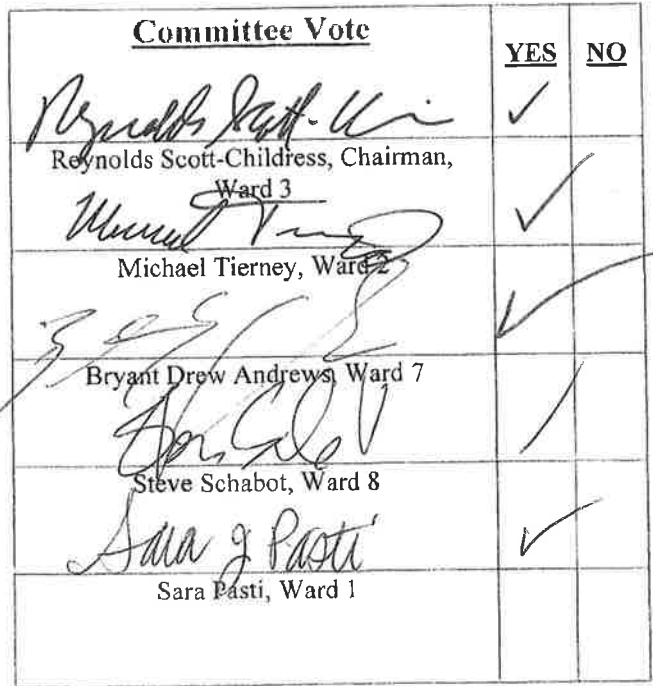 Committee Vote
YES NO
Reynolds Scott-
Reynolds Scott-Childress, Chairman,
Ward 3
Michael Tierney, Ward 2
Bryant Drew Andrews, Ward 7
Steve Schabot, Ward 8
Sara J Pasti
Sara Pasti, Ward 1